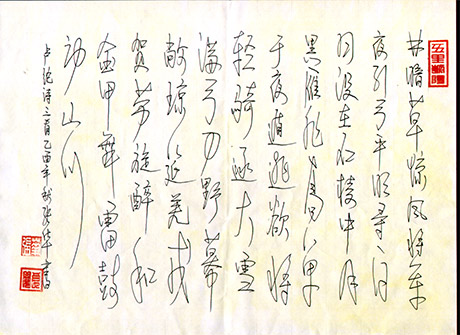 林暗草惊风将军
夜引弓平明寻白
羽没在石棱中月
黑雁飞高单
于夜遁逃欲将
轻骑逐大雪
满弓刀野幕
敞琼筵羌戎
贺劳旋醉和
金甲舞雷鼓
动山川
卢纶诗三首乙酉年秋